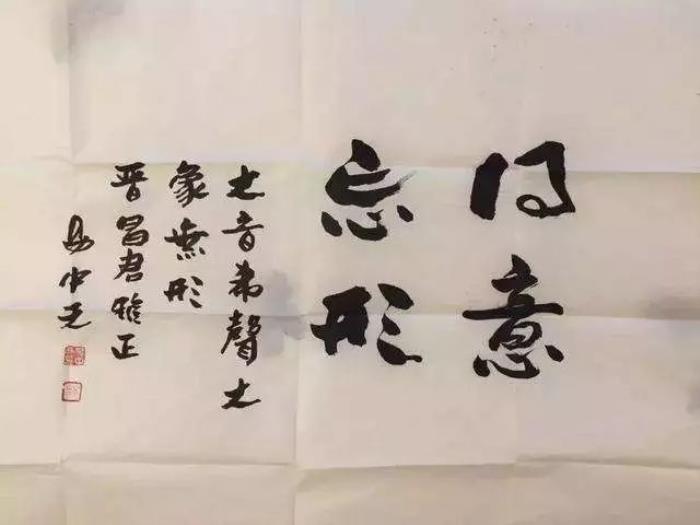 得意
忘形
大音希聲大
象無形
晋昌君雅正
易中天